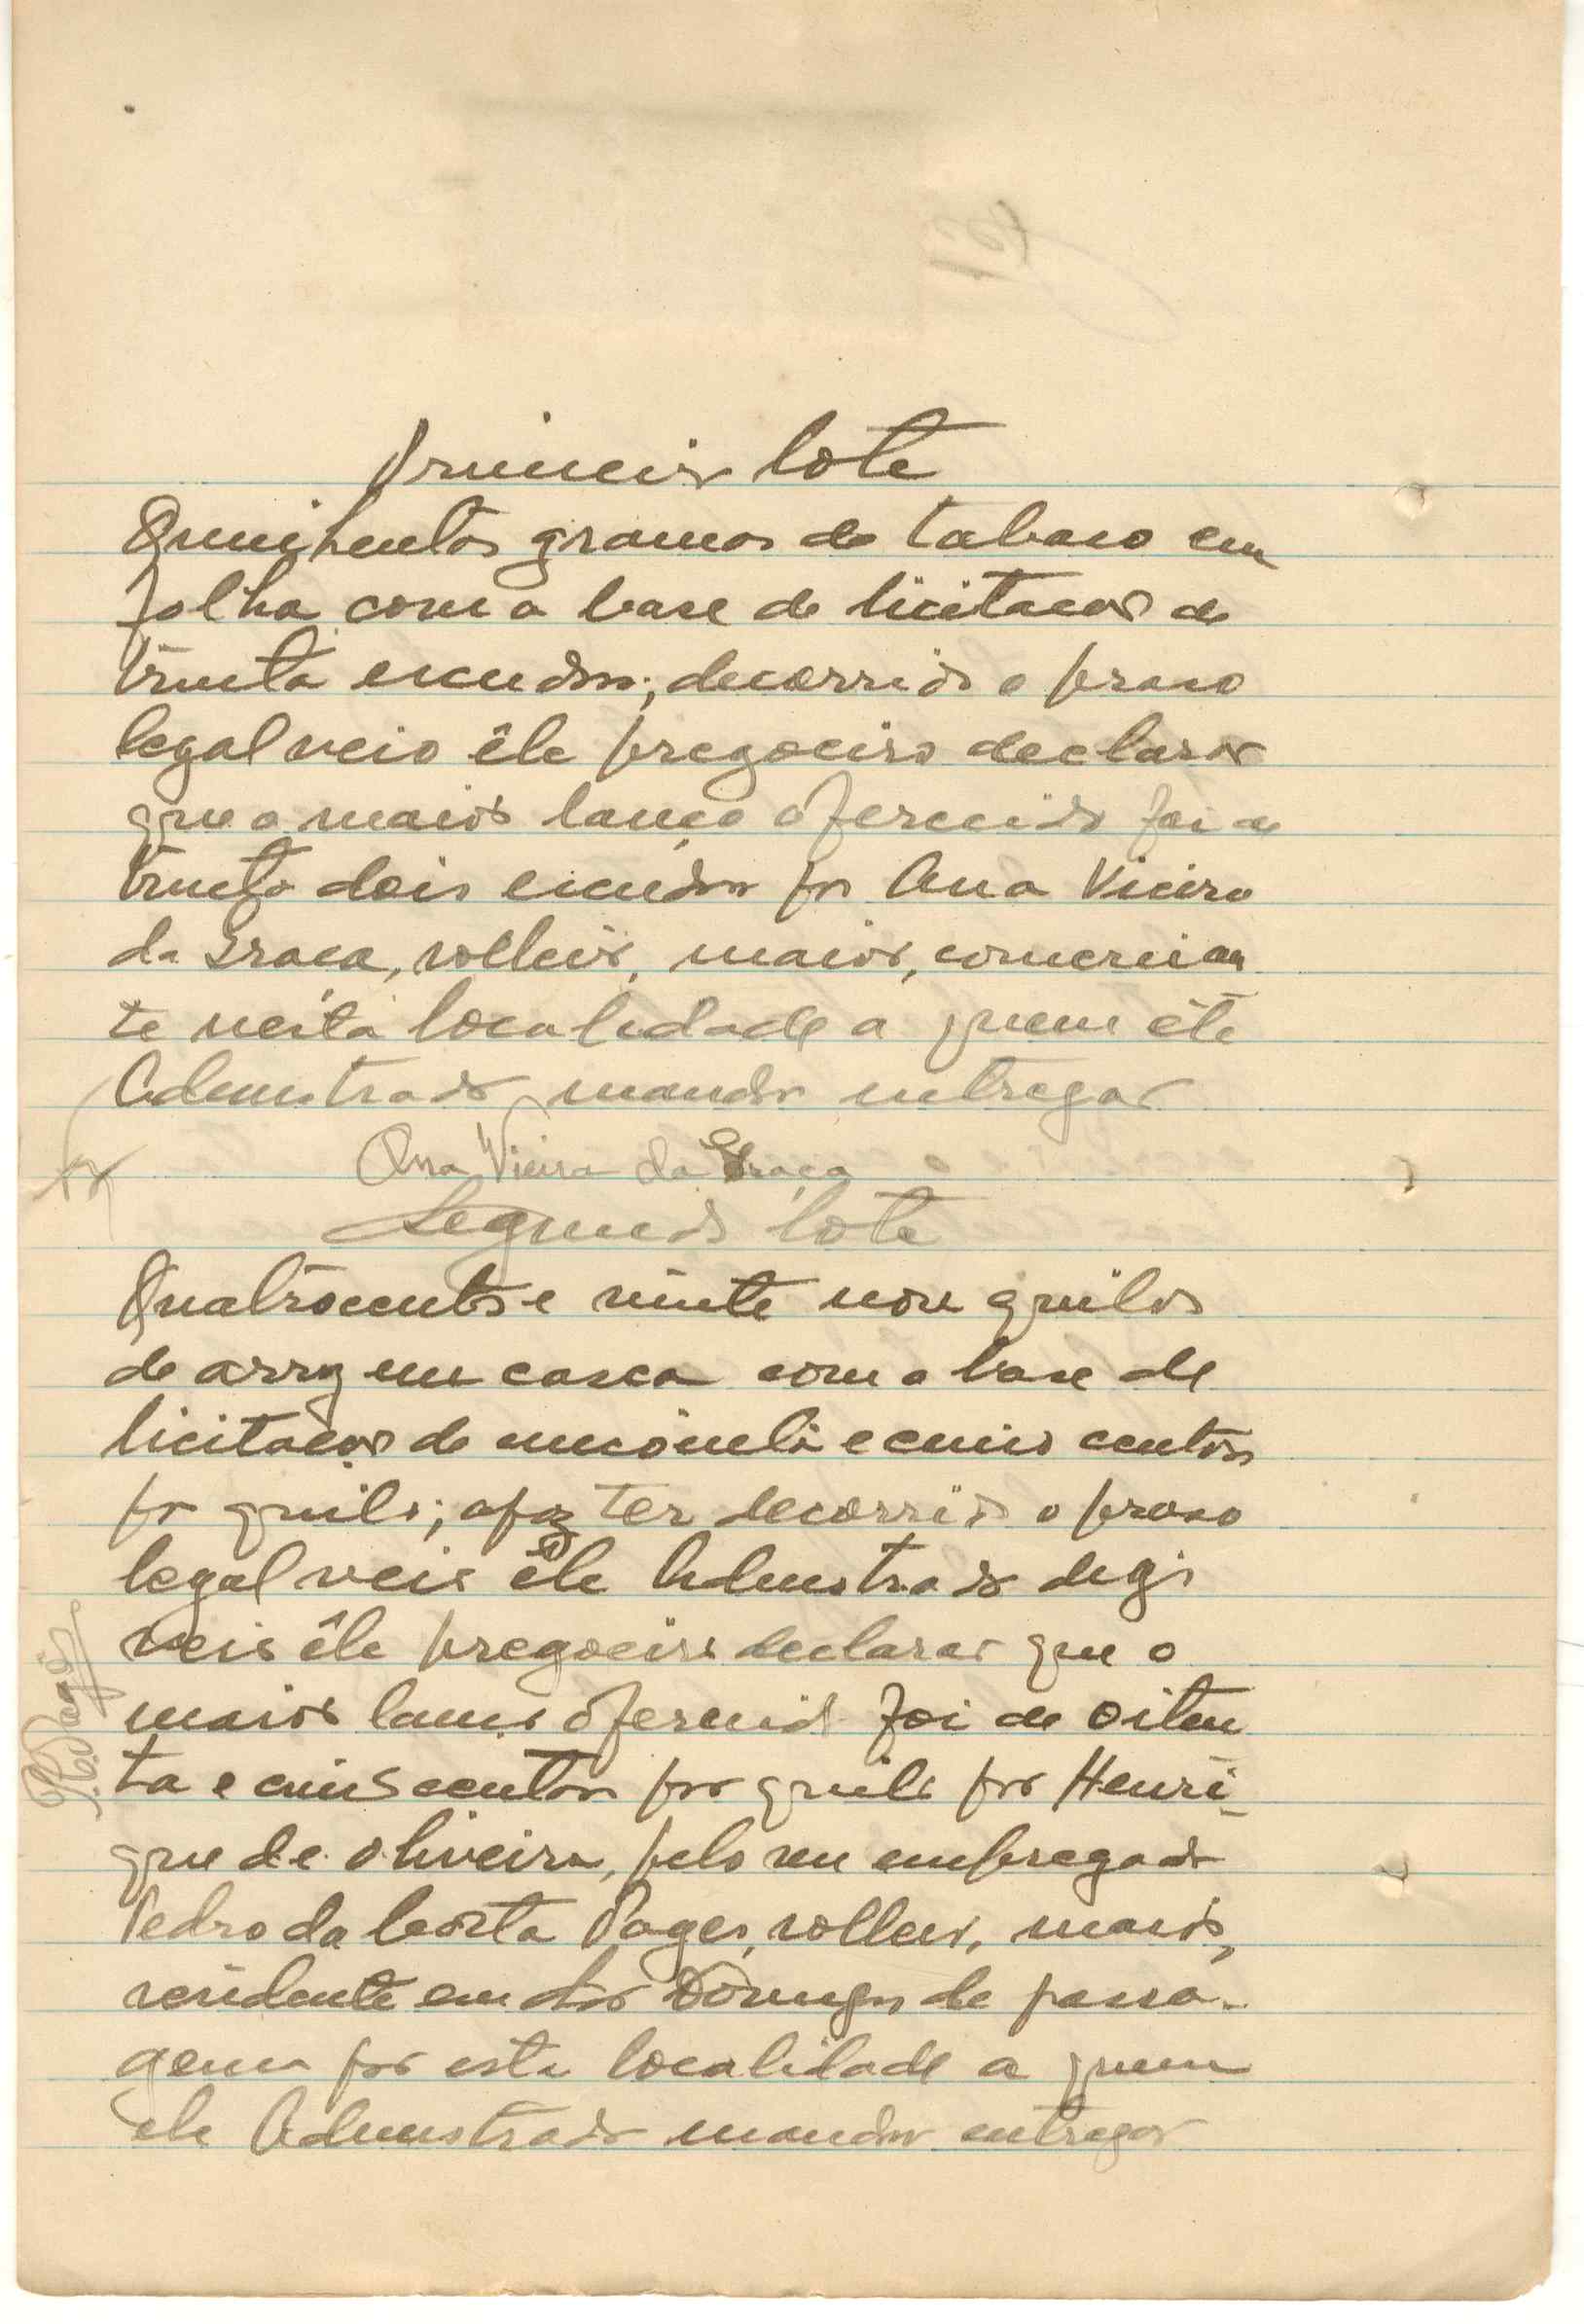 Primeiro lote
Quinhentos gramas de tabaco em
folha com a base de licitação de
trinta escudos; decorrido o praso
legal veio êle pregoeiro declarar
que o maior lanço oferecido foi de
trinta dois escudos por Ana Vieira
da Graça, solteira, maior, comercian
te nesta localidade a quem êle
Administrador mandou entregar
Ana Vieira da Graça
Segundo lote
Quatrocentos e vinte nove quilos
de arroz em casca com a base de
licitação de cincoenta e cinco centavos
por quilo; apoz ter decorrido o praso
legal veio êle Administrador digo
veio êle pregoeiro declarar que o
maior lanço oferecido foi de oiten
ta e cinco centavos por quilo por Henri-
que de Oliveira, pelo seu empregado
Pedro da Costa Pages, solteiro, maior,
residente em São Domingos de passa-
gem por esta localidade a quem
ele Administrador mandou entregar